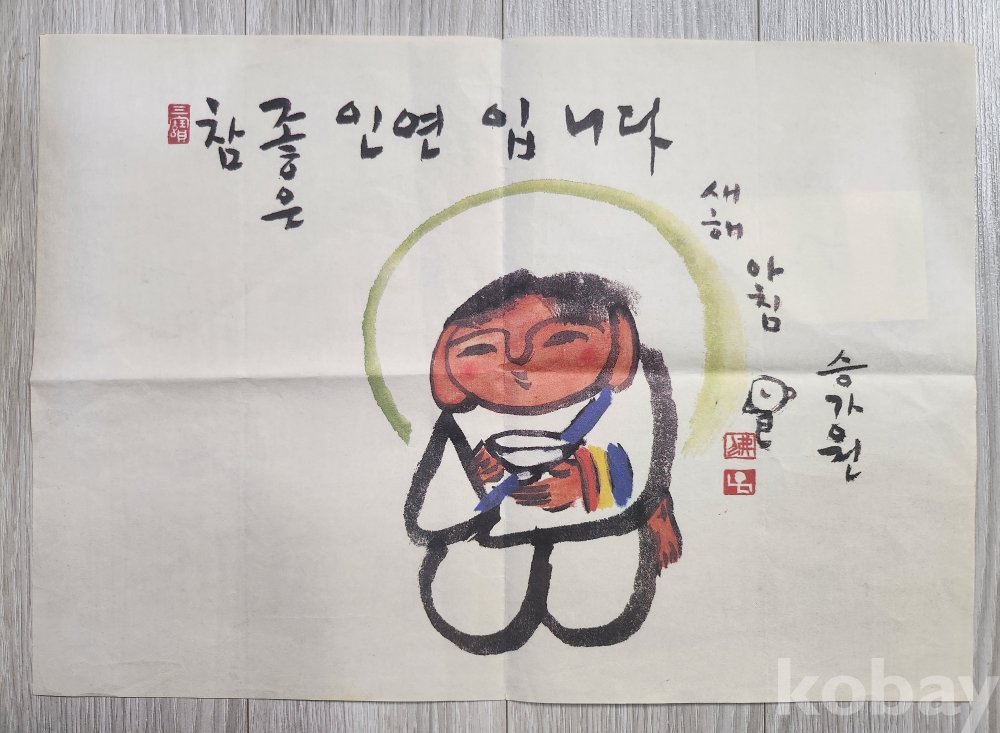 참 좋은 인연 입니다
새해
아침
승가원
kobay